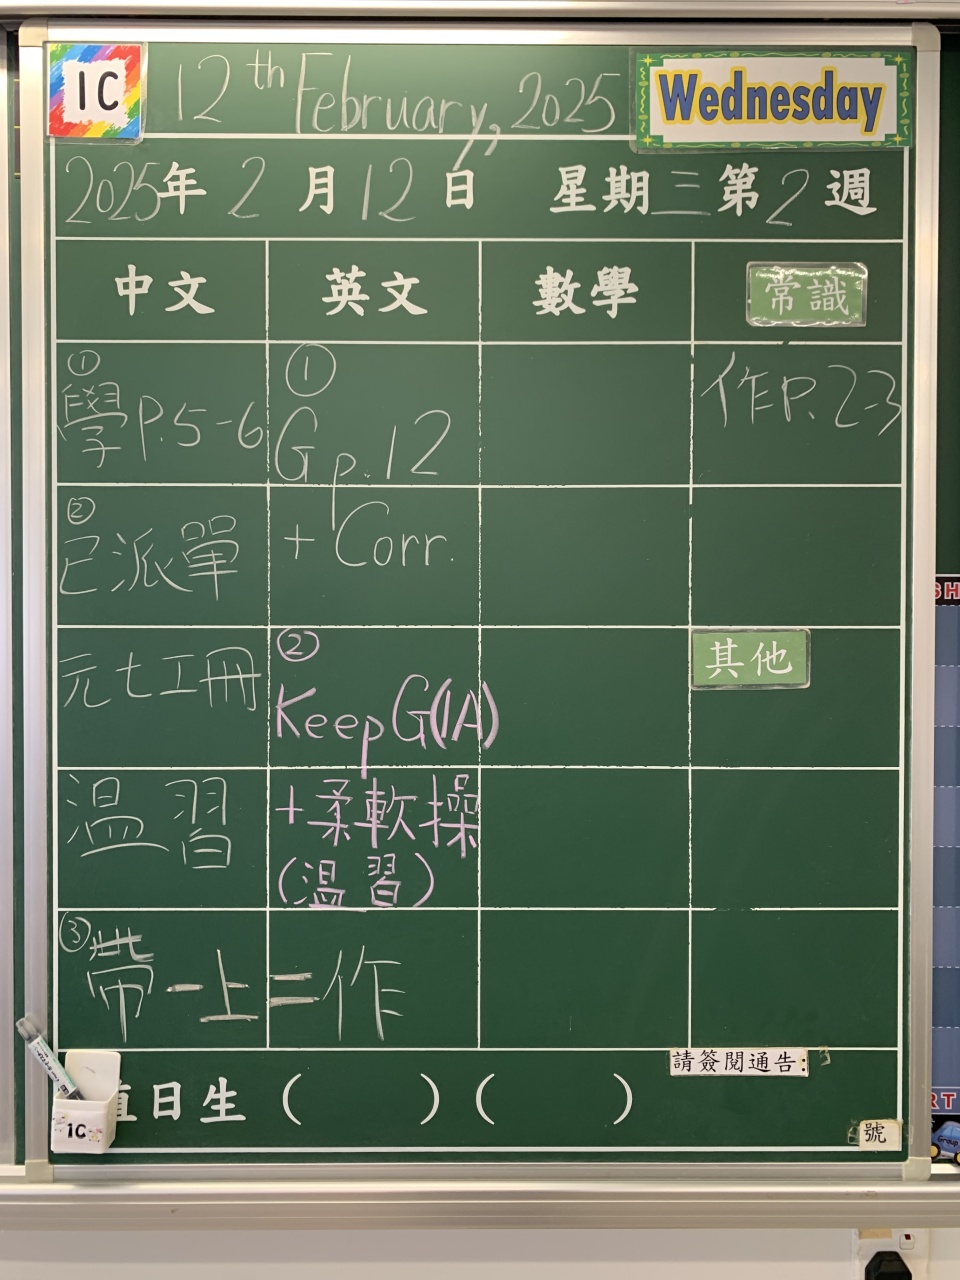 1C
12th February, 2025
Wednesday
2025年2月12日 星期三第2週
中文 英文 數學 常識
①
學P.5-6
①
G p.12
作P.2-3
②
已派單
+ Corr.
元七工冊
②
Keep G(1A)
其他
溫習
+柔軟操
(溫習)
③
帶一上二作
請簽閱通告:
值日生 ( ) ( )
1C
號
Group